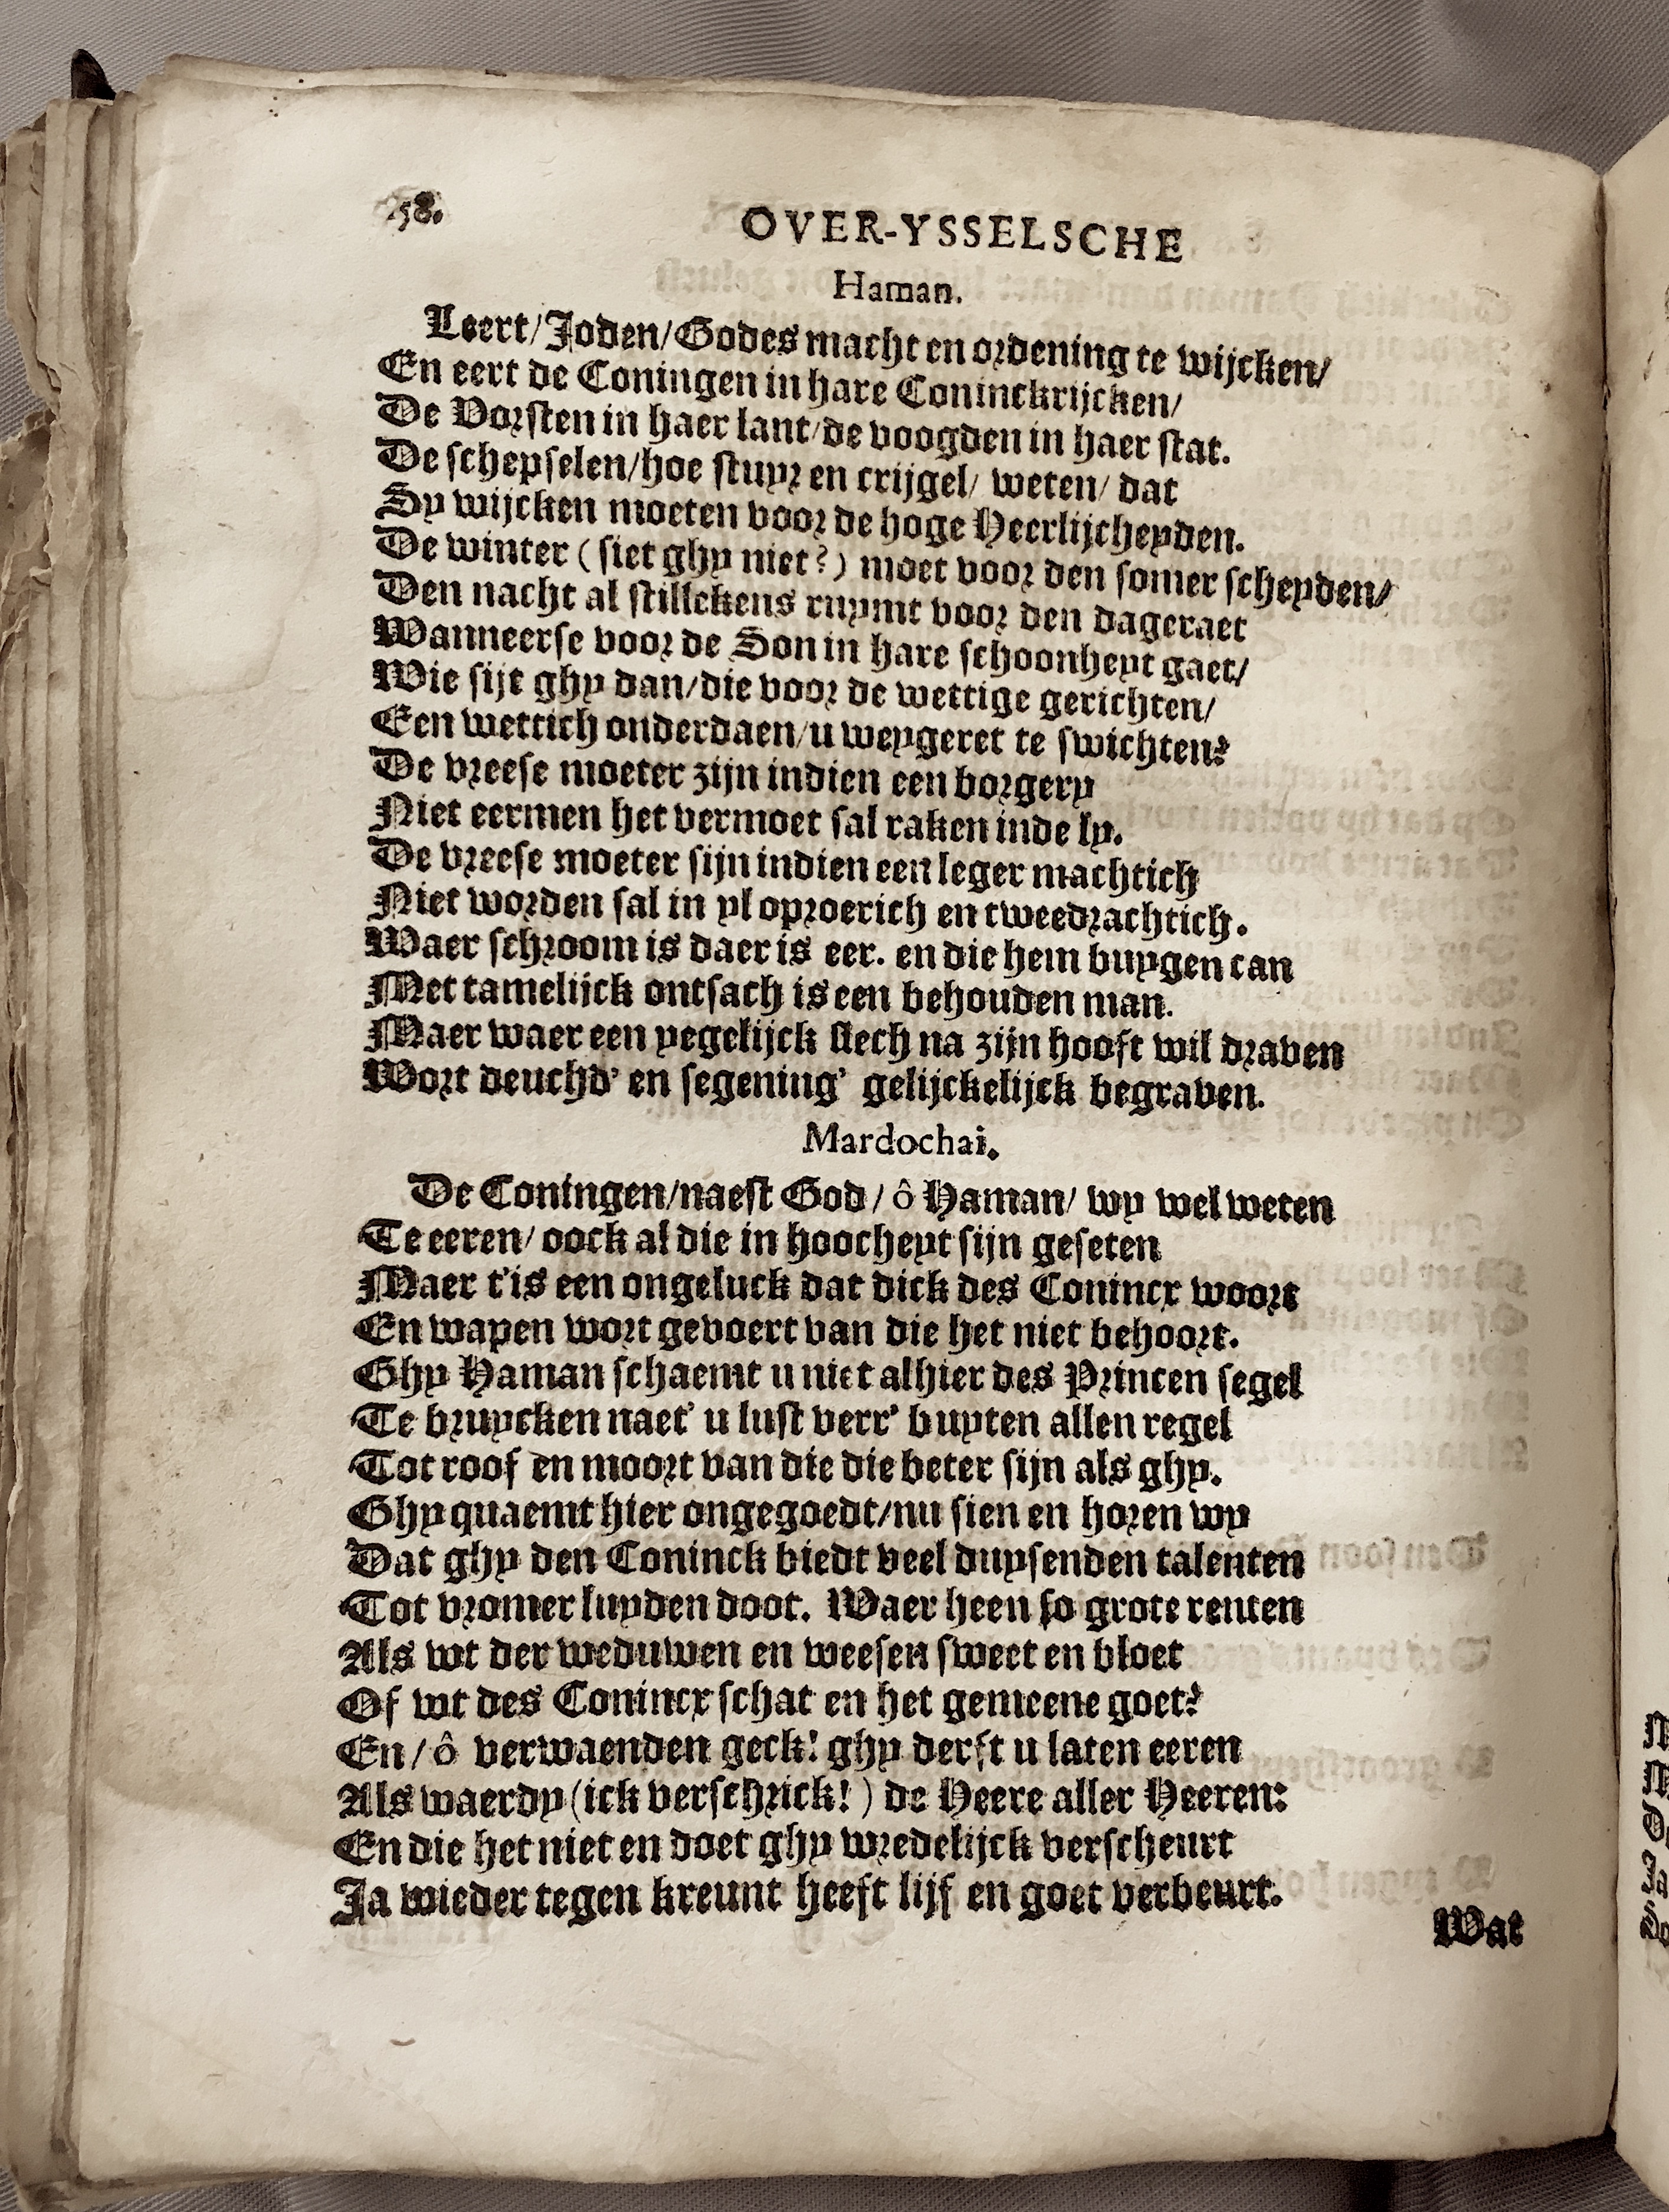 58.
OVER-YSSELSCHE
Haman.
Leert/Joden/Godes macht en ordening te wijcken/
En eert de Coningen in hare Coninckrijcken/
De Vorsten in haer lant/de voogden in haer stat.
De schepselen/hoe stuyr en crijgel/ weten/ dat
Sy wijcken moeten voor de hoge Heerlijcheyden.
De winter (siet ghy niet?) moet voor den somer scheyden/
Den nacht al stillekens ruymt voor den dageraet
Wanneerse voor de Son in hare schoonheyt gaet/
Wie sijt ghy dan/die voor de wettige gerichten/
Een wettich onderdaen/u weygeret te swichten?
De vreese moeter zijn indien een borgery
Niet eermen het vermoet sal raken inde ly.
De vreese moeter sijn indien een leger machtich
Niet worden sal in yl oproerich en tweedrachtich.
Waer schroom is daer is eer. en die hem buygen can
Met tamelijck ontsach is een behouden man.
Maer waer een yegelijck slech na zijn hooft wil draven
Wort deuchd' en segening' gelijckelijck begraven.
Mardochai.
De Coningen/naest God/ ô Haman/ wy wel weten
Te eeren/ oock al die in hoocheyt sijn geseten
Maer t'is een ongeluck dat dick des Conincx woort
En wapen wort gevoert van die het niet behoort.
Ghy Haman schaemt u niet alhier des Princen segel
Te bruycken naet' u lust verr' buyten allen regel
Tot roof en moort van die die beter sijn als ghy.
Ghy quaemt hier ongegoedt/nu sien en horen wy
Dat ghy den Coninck biedt veel duysenden talenten
Tot vromer luyden doot. Waer heen so grote renten
Als wt der weduwen en weesen sweet en bloet
Of wt des Conincx schat en het gemeene goet?
En/ ô verwaenden geck! ghy derft u laten eeren
Als waerdy (ick verschrick!) de Heere aller Heeren:
En die het niet en doet ghy wredelijck verscheurt
Ja wieder tegen kreunt heeft lijf en goet verbeurt.
Wat